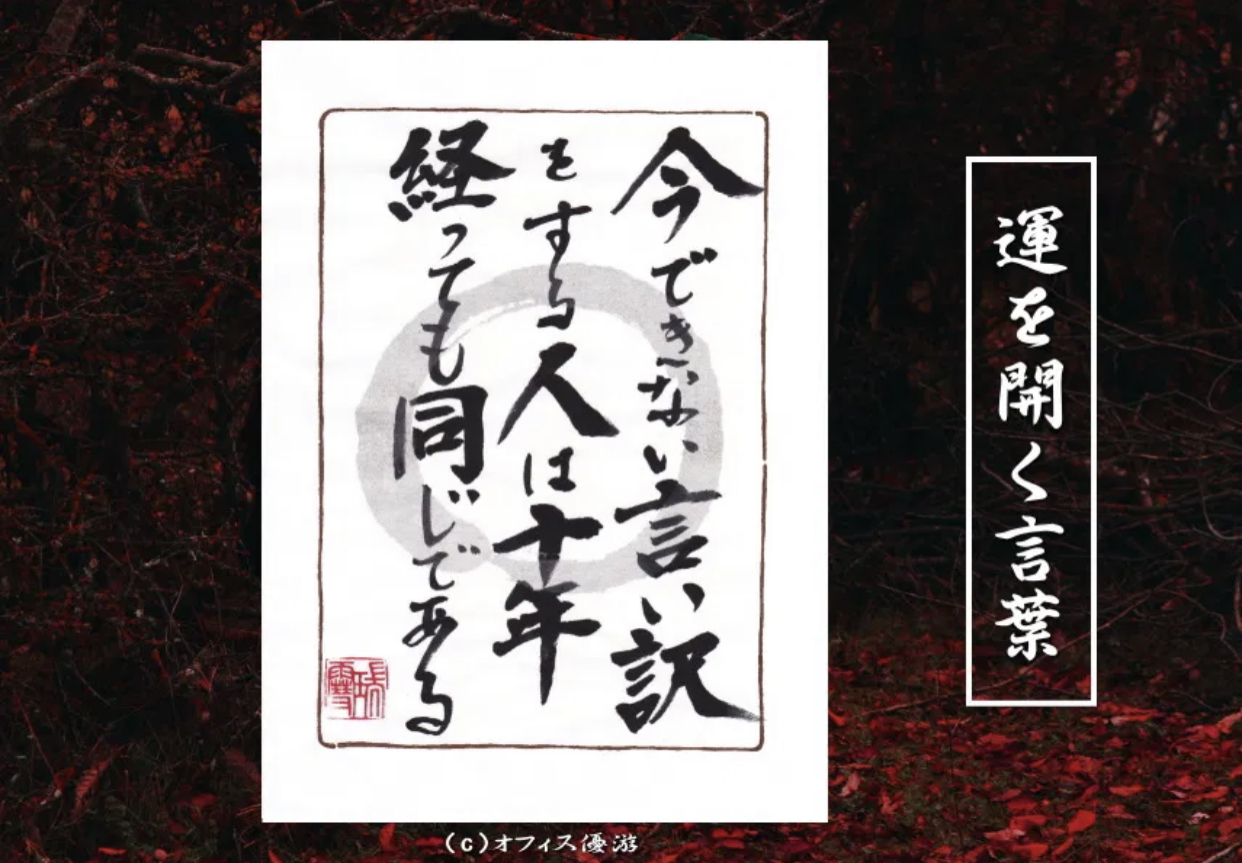 運を開く言葉
今できない言い訳
をする人は十年
経っても同じである
(c)オフィス優游